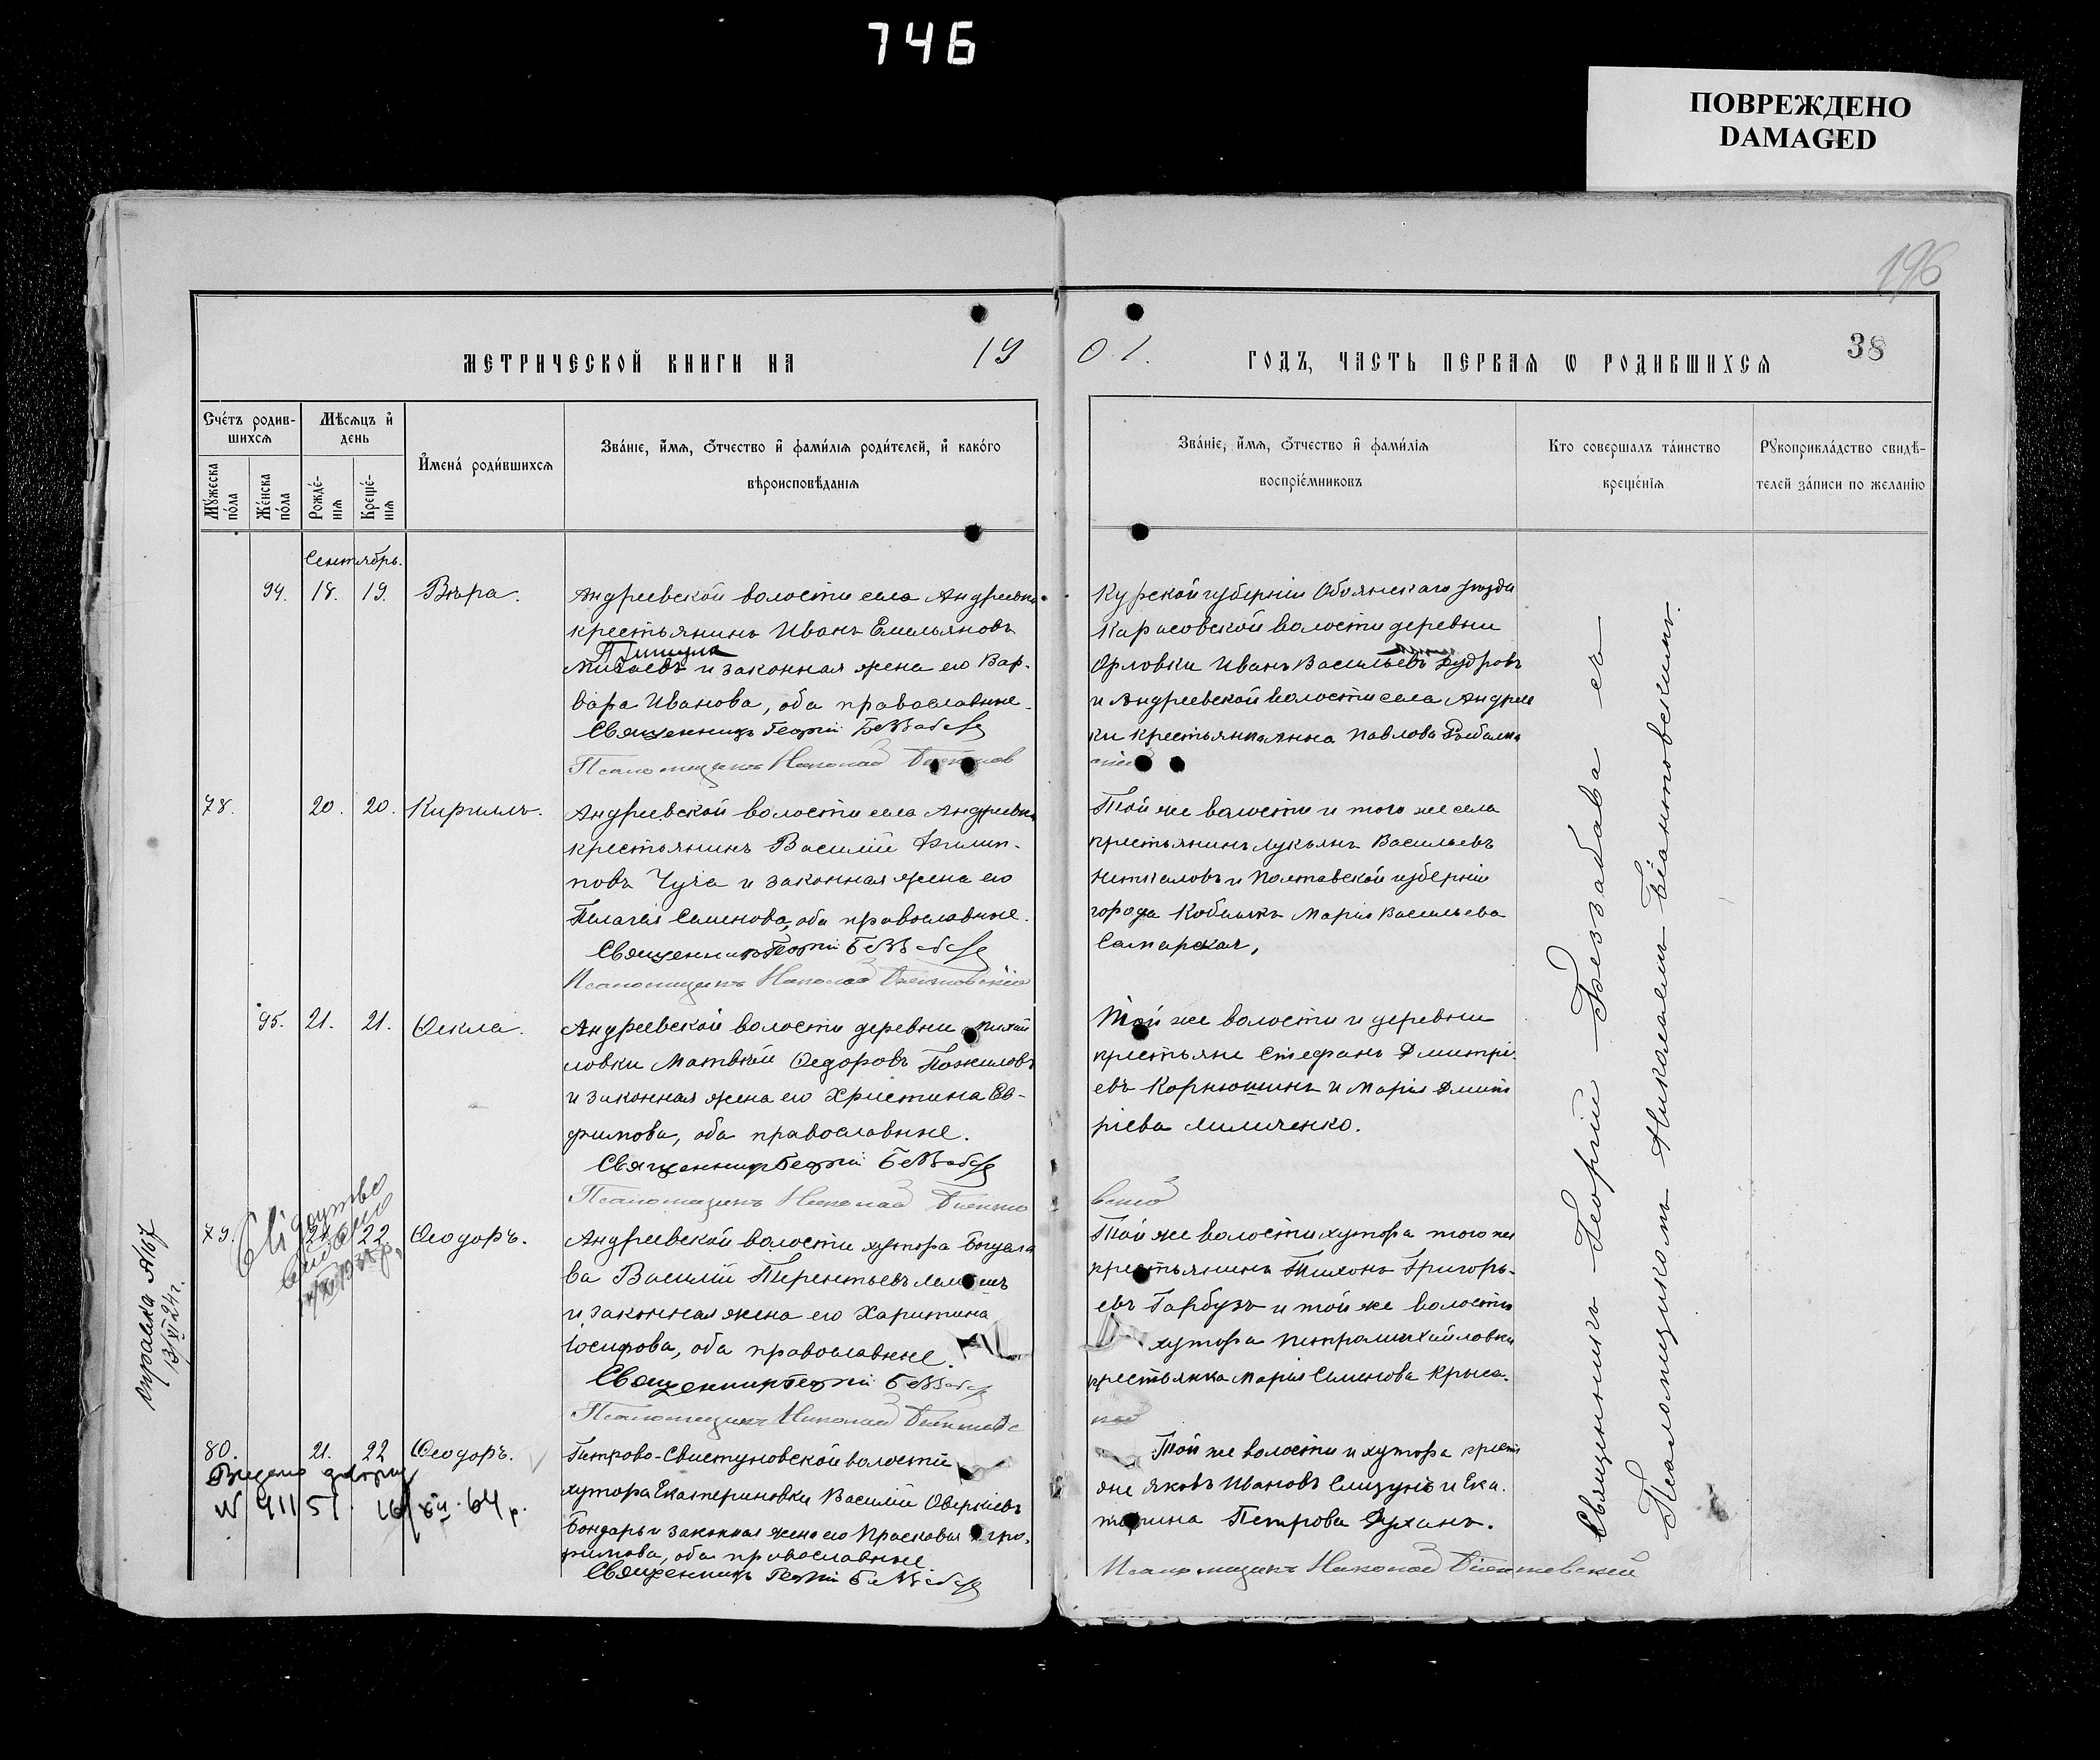 746
ПОВРЕЖДЕНО
DAMAGED
196
МЕТРИЧЕСКОЙ КНИГИ НА 19
01. ГОДЪ, ЧАСТЬ ПЕРВАЯ Ѡ РОДИВШИХСЯ 38
Сче́тъ родив-
шихся
Мѣсяцъ и҆
день
Мꙋ́жеска
по́ла
Же́нска
по́ла
Рожде́-
нія
Креще́-
нія
И҆мена́ роди́вшихся
Зва́ніе, и҆́мя, ѻ҆́тчество и҆ фами́лія роди́телей, и҆ како́го
вѣроисповѣ́данія
Зва́ніе, и҆́мя, ѻ҆́тчество и҆ фами́лія
воспріе́мниковъ
Кто соверша́лъ та́инство
креще́нія
Рꙋкоприкла́дство свидѣ́-
телей за́писи по жела́нію
Сентябрь.
94. 18. 19. Вѣра.
Андреевской волости села Андреевки
крестьянинъ Иванъ Емельяновъ
и законная жена его Вар-
вара Иванова, оба православные.
Священникъ Георгій Беззабава
Псаломщикъ Николай
Курской губерніи Обоянскаго уѣзда
волости деревни
Орловки Иванъ Васильевъ
и Андреевской волости села Андреев
ки крестьянка Анна Павлова
78. 20. 20. Кириллъ.
Андреевской волости села Андреевки
крестьянинъ Василій Филип-
повъ Чуча и законная жена его
Пелагія Семенова, оба православные.
Священникъ Георгій Беззабава
Псаломщикъ Николай Біантовскій
Той же волости и того же села
крестьянинъ Лукьянъ Васильевъ
и Полтавской губерніи
города Кобелякъ Марія Васильева
Самарская,
95. 21. 21. Ѳекла.
Андреевской волости деревни Михай
ловки Матвѣй Ѳедоровъ Пожиловъ
и законная жена его Христина Ев-
фимова, оба православные.
Священникъ Георгій Беззабава
Псаломщикъ Николай Біанто
вскій
Той же волости и деревни
крестьяне Стефанъ Дмитрі-
евъ Корнюшинъ и Марія Дмит
ріева Миличенко.
79. 21. 22 Ѳеодоръ.
Свідоцтво
видано
Справка №167
13/VI 24 г.
Андреевской волости хутора
ва Василій Терентьевъ
и законная жена его Харитина
Іосифова, оба православные.
Священникъ Георгій Беззабава
Псаломщикъ Николай
Той же волости хутора того же
крестьянинъ Тихонъ Григорь-
евъ Гарбузъ и той же волости
хутора Петромихайловки
крестьянка Марія Семенова Крыса.
80. 21. 22 Ѳеодоръ.
N 41151. 16/XII. 64 р.
Петрово-Свистуновской волости
хутора Екатериновки Василій Оверкіевъ
Бондарь и законная жена его Прасковья
оба православные
Священникъ Георгій Беззабава
Той же волости и хутора крестя
яне Яковъ Ивановъ Слизунъ и Ека-
терина Петрова Духанъ.
Псаломщикъ Николай Біантовскій
Священникъ Георгій Беззабава съ
Псаломщикомъ Николаемъ Біантовскимъ.